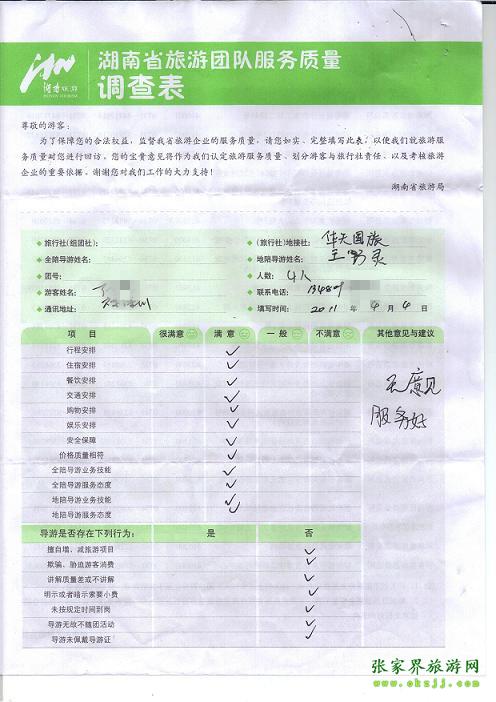 湖南旅游
湖南省旅游团队服务质量
调查表
尊敬的游客：
为了保障您的合法权益，监督我省旅游企业的服务质量，请您如实、完整填写此表，以便我们就旅游服
务质量对您进行回访。您的宝贵意见将作为我们认定旅游服务质量、划分游客与旅行社责任、以及考核旅游
企业的重要依据。谢谢您对我们工作的大力支持！
湖南省旅游局
旅行社(组团社)：
(旅行社)地接社： 华天国旅
全陪导游姓名：
地陪导游姓名：
团号：
人数： 4人
游客姓名：
联系电话： 13489
通讯地址：
填写时间： 2011 年 4 月 4 日
项 目 很满意 满 意 一 般 不满意 其他意见与建议
行程安排 ✓
住宿安排 ✓
餐饮安排 ✓
交通安排 ✓
购物安排 ✓
娱乐安排 ✓
安全保障 ✓
价格质量相符 ✓
全陪导游业务技能 ✓
全陪导游服务态度 ✓
地陪导游业务技能 ✓
地陪导游服务态度 ✓
无意见
服务好
导游是否存在下列行为： 是 否
擅自增、减旅游项目 ✓
欺骗、胁迫游客消费 ✓
讲解质量差或不讲解 ✓
明示或者暗示索要小费 ✓
未按规定时间到岗 ✓
导游无故不随团活动 ✓
导游未佩戴导游证 ✓
张家界旅游网
www.okzjj.com